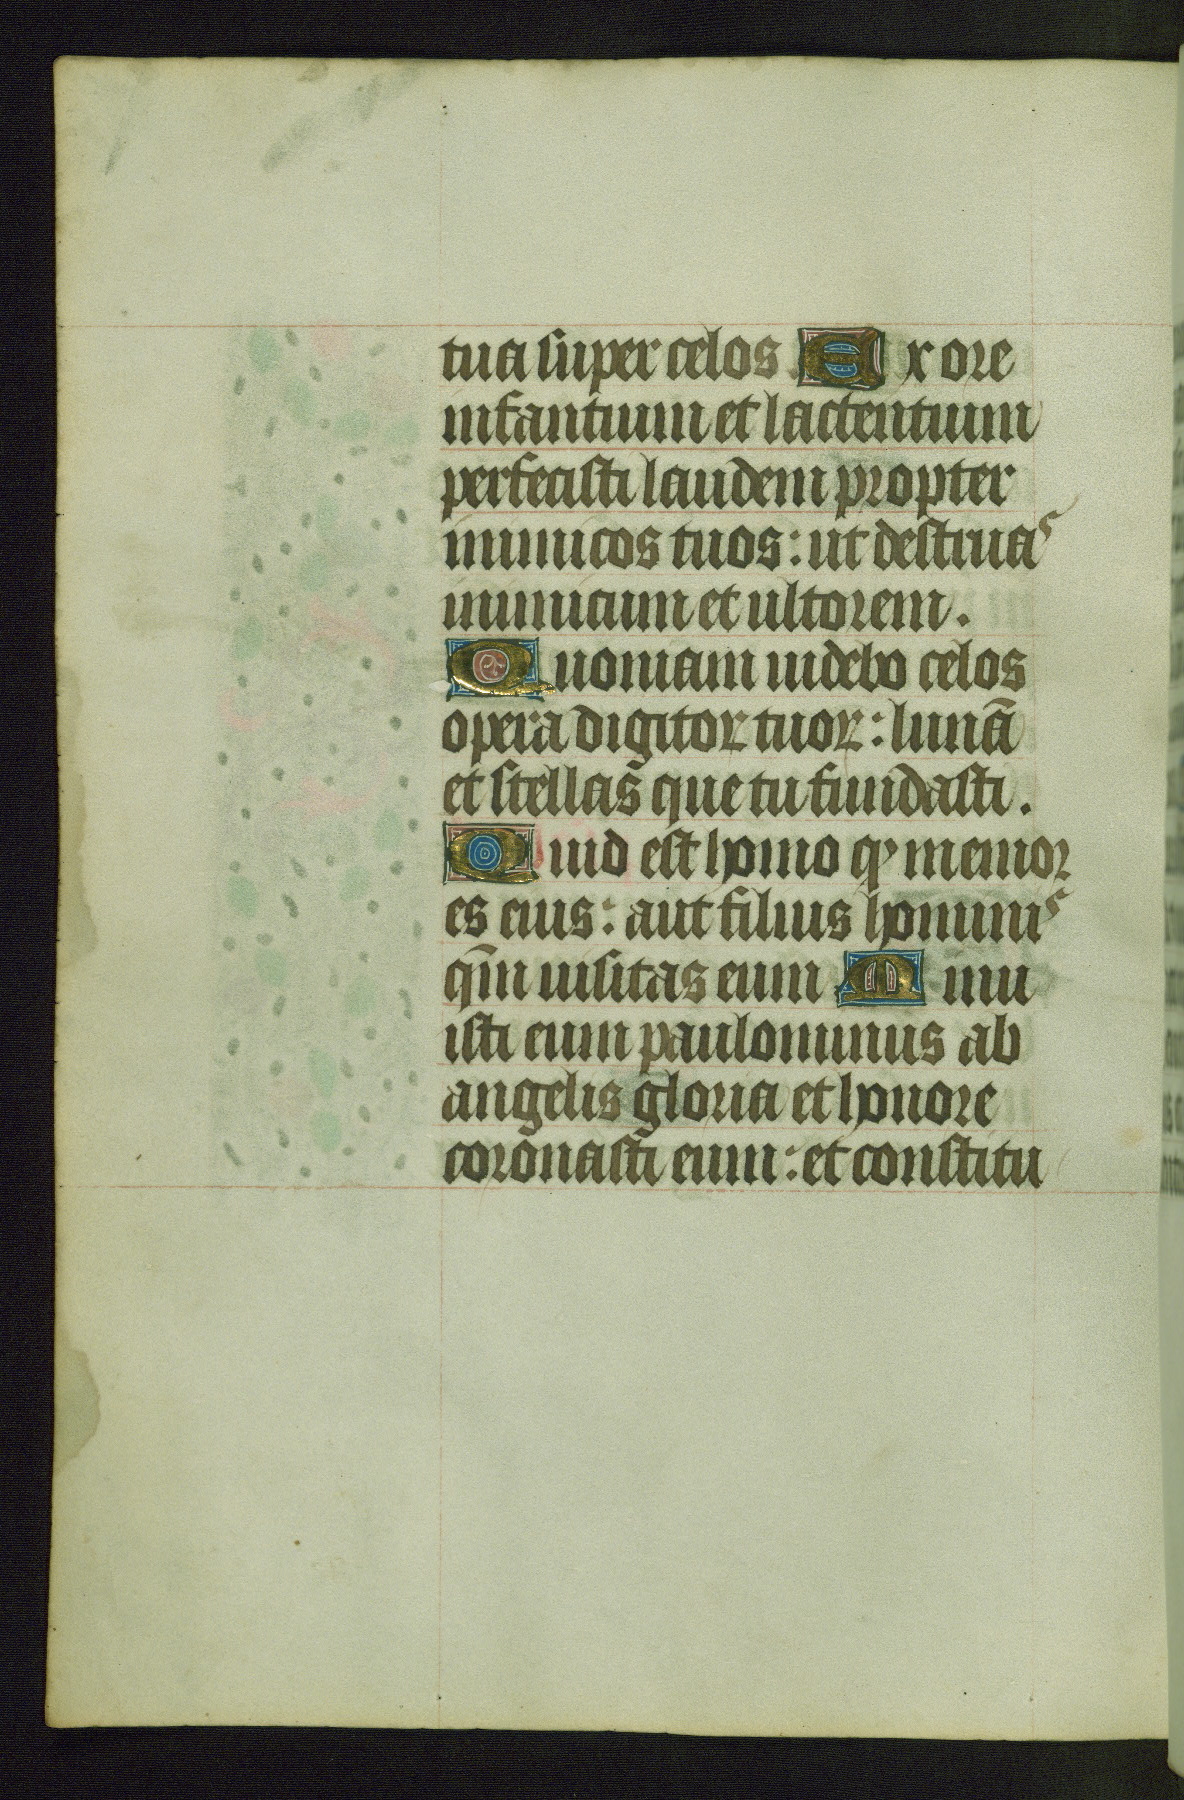 tua super celos Ex ore
infantium et lactentium
perfecisti laudem propter
inimicos tuos: ut destruas
inimicum et ultorem.
Quoniam uidebo celos
opera digitoꝝ tuoꝝ: lunā
et stellas que tu fundasti.
Quid est homo ꝙ memor
es eius: aut filius hominis
qm̄ uisitas eum Minu
isti eum paulominus ab
angelis gloria et honore
coronasti eum: et constitu